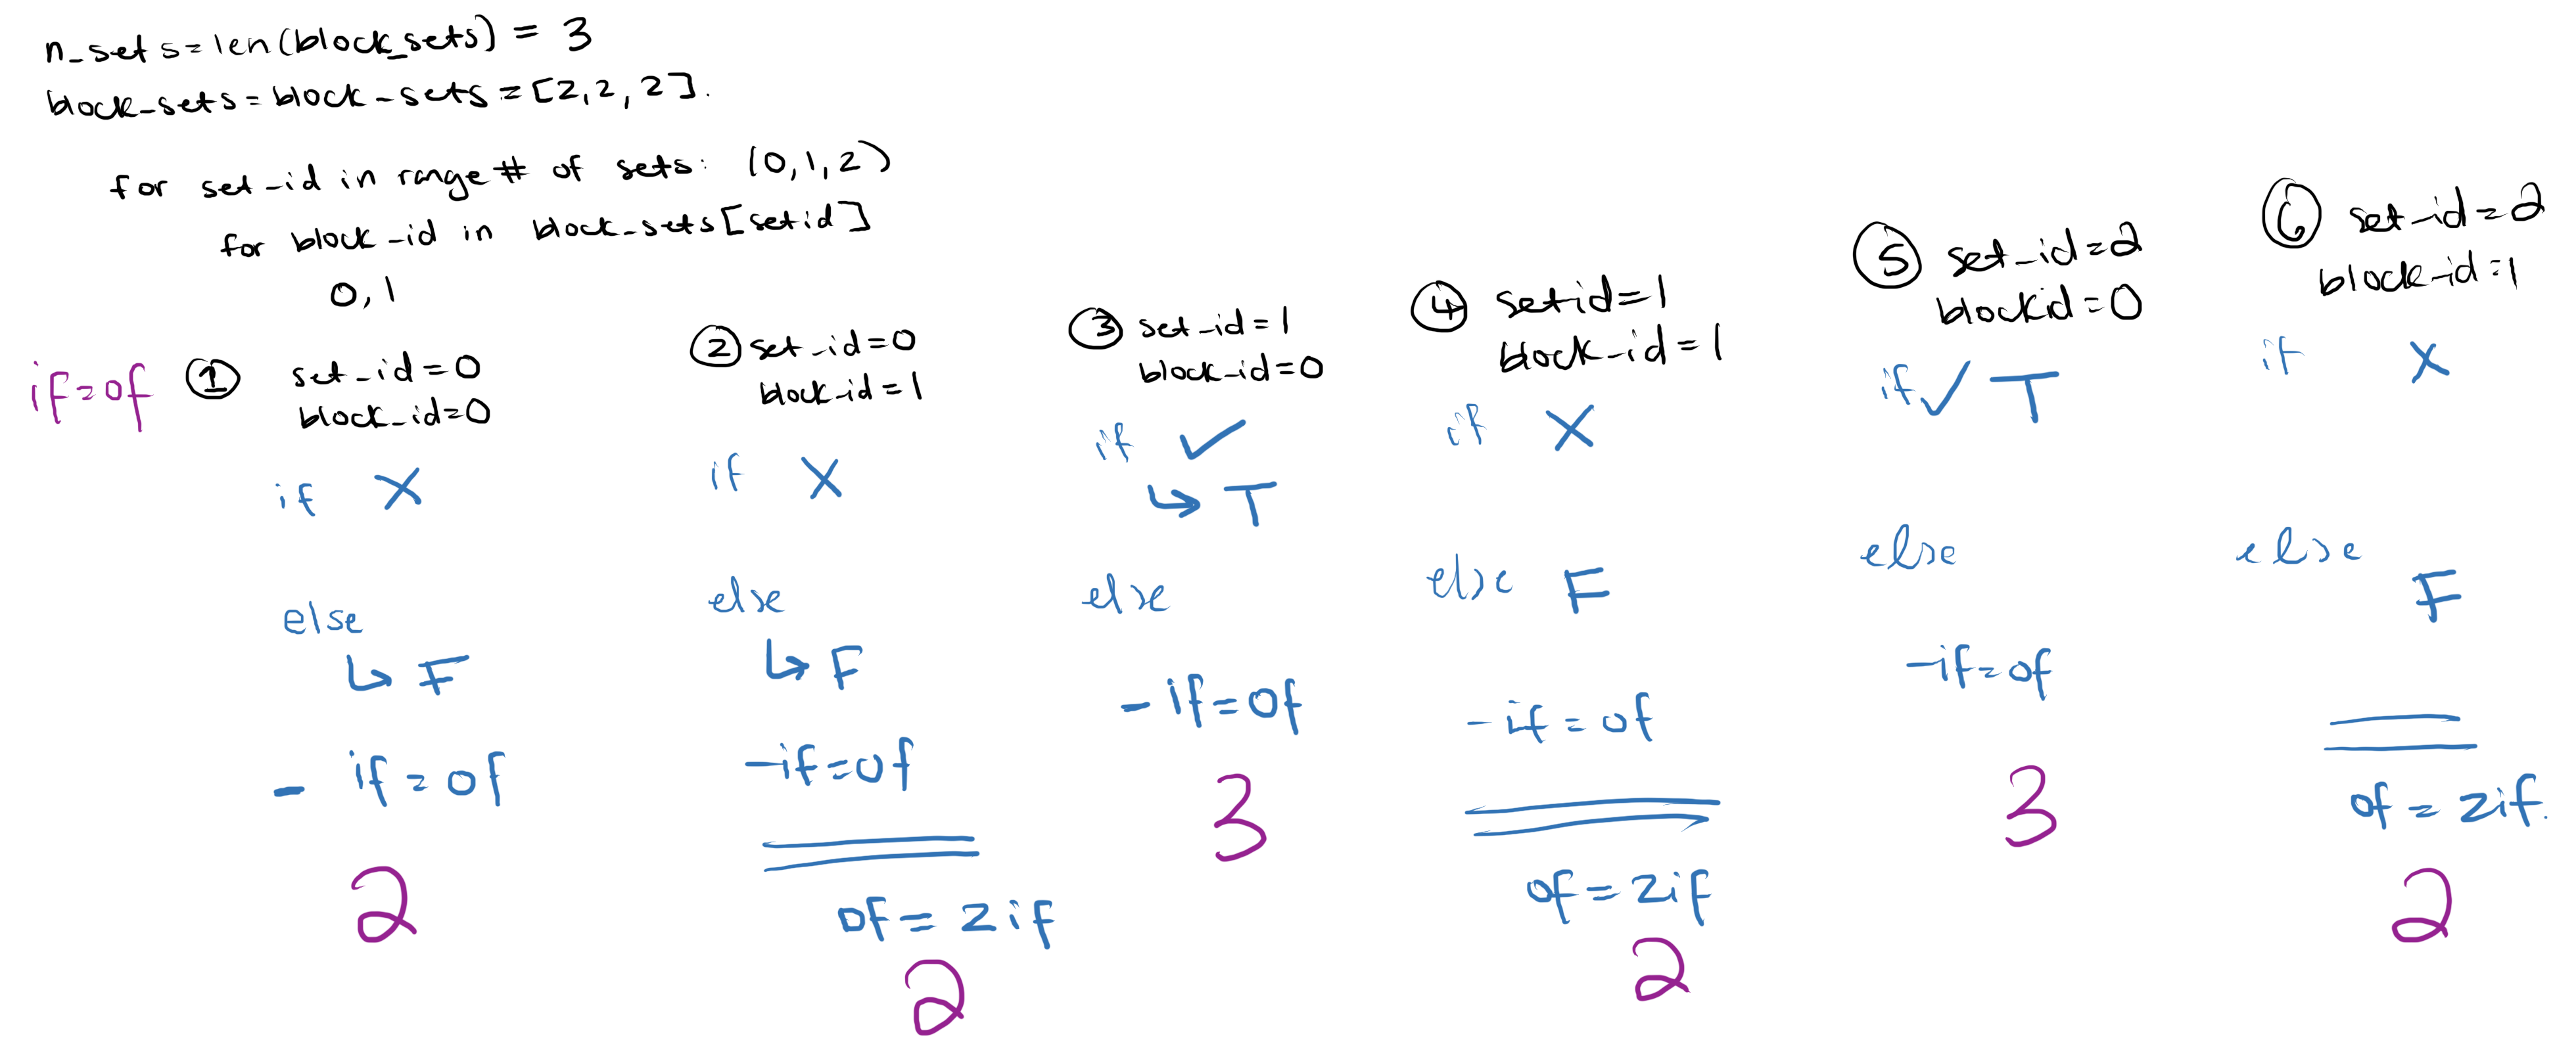 n_sets=len(block_sets) = 3
block_sets=block-sets=[2,2,2].
for set-id in range # of sets: (0,1,2)
for block-id in block_sets[setid]
0,1
if=of
① set-id=0
block_id=0
if X
else
↳ F
- if=of
2
② set-id=0
block-id=1
if X
else
↳ F
-if=of
of=2if
2
③ set-id=1
block-id=0
if ✓
↳ T
else
-if=of
3
④ setid=1
block-id=1
if X
else F
-if=of
of=2if
2
⑤ set-id=2
blockid=0
if ✓ T
else
-if=of
3
⑥ set-id=2
block-id=1
if X
else
F
of=2if.
2